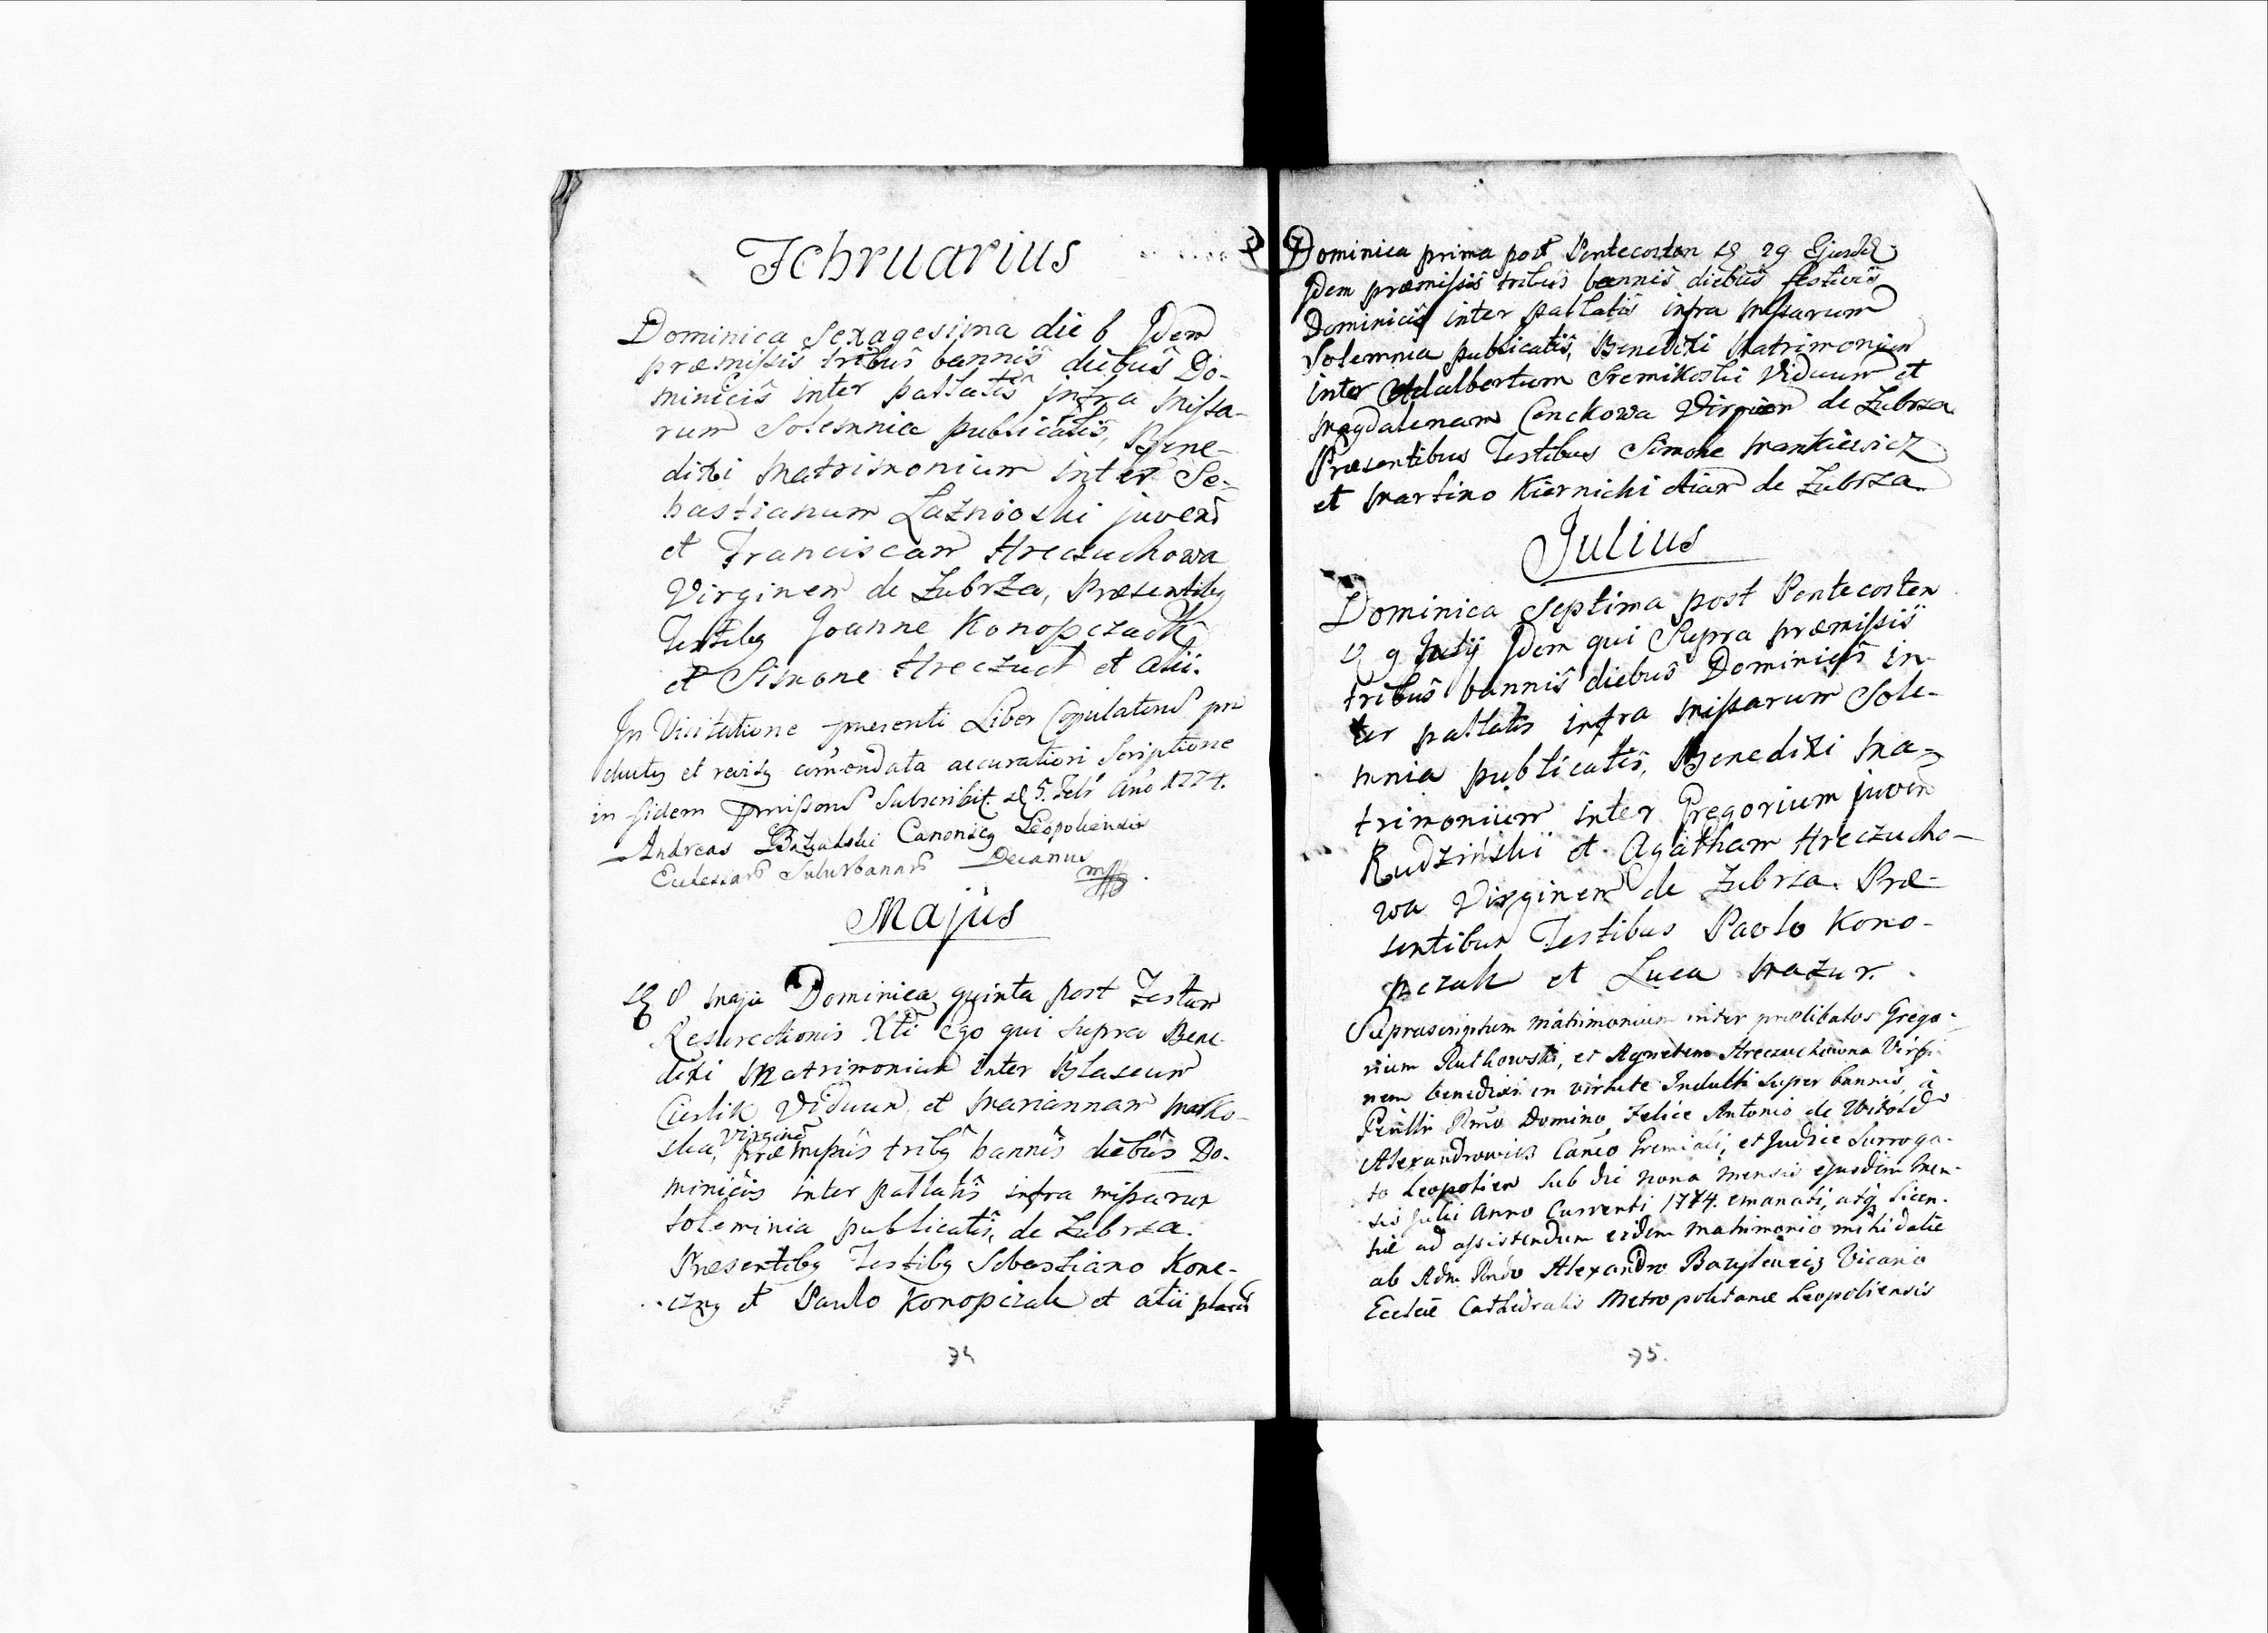 Februarius
Dominica Sexagesima die 6 Idem
præmissis tribus bannis diebus Do-
minicis inter pallatis infra Missa-
rum Solemnia publicatis, Bene-
dixi Matrimonium inter Se-
bastianum Laznioski juvenē
et Franciscam Hreczuchowa
Virginem de Zubrza, Præsentibq
Testibq Joanne Konopczack
et Simone Hreczuch et alii.
In Visitatione presenti Liber Copulatorū pro
ductq et revisq accuratiori Scriptione
in fidem Subscribit. d 5. Feb Año 1774.
Andreas Canonicq Leopoliensis
Ecclesiarū Suburbanarū Decanus
mpp
Majus
d 8 Maji Dominica quinta post Festum
Resurectionis Xti Ego qui supra Bene-
dixi Matrimonium inter Blaseum
Cieslik Viduum et Mariannam Marko-
ska, Virginē præmissis tribq bannis diebus Do-
minicis inter pallatis infra missarum
soleminia publicatis, de Zubrza.
Præsentibq Testibq Sebastiano Kone-
czny et Paulo Konopczak et alii plures
74
Dominica prima post Pentecosten d 29 Ejusdē
Idem præmissis tribus bannis diebus festivis
Dominicis inter pallatis infra Missarum
Solemnia publicatis, Benedixi Matrimonium
inter Adalbertum Sremikoski Viduum et
Magdalenam Cenckowa Virginem de Zubrza
Præsentibus Testibus Simone Mankiewicz
et Martino Kiernicki de Zubrza
Julius
Dominica Septima post Pentecosten
d 9 Julij Idem qui Supra præmissis
tribus bannis diebus Dominicis in-
ter pallatis infra missarum Sole-
mnia publicatis, Benedixi Ma-
trimonium inter Gregorium juvenē
Rudzinski et Agatham Hreczucho-
wa Virginem de Zubrza. Præ-
sentibus Testibus Paolo Kono-
pczak et Luca Mazur.
Suprascriptum matrimonium inter prælibatos Grego-
rium Rutkowski, et Agnetem Hreczuchowna Virgi-
nem benedixi in virtute Indulti super bannis, à
Perilltri Rmō Domino Felice Antonio de Witold
Alexandrowicz Canco Gremiali, et Judice Surroga-
to Leopolien sub die nona mensis ejusdem Men-
sis Julii Anno Currenti 1774. emanati, atq Licen-
tiæ ad assistendum eidem matrimonio mihi datæ
ab Adm Rndo Alexandro Bazylewicz Vicario
Eccleiæ Cathedralis Metropolitanæ Leopoliensis
75.